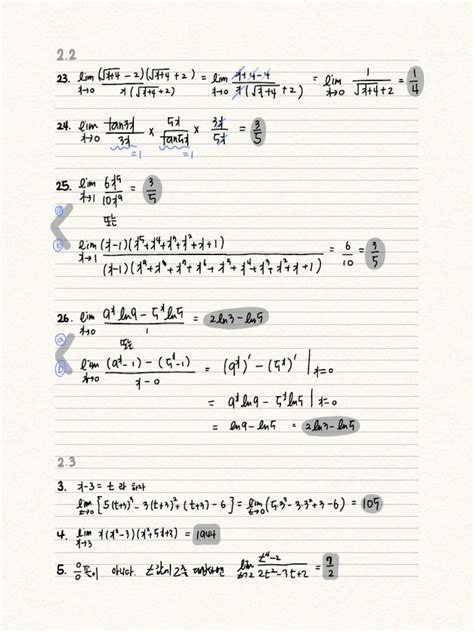 2.2
23. lim x→0 (√x+4 - 2)(√x+4 + 2) / x(√x+4 + 2) = lim x→0 x+4-4 / x(√x+4 + 2) = lim x→0 1 / √x+4 + 2 = 1/4
24. lim x→0 tan3x/3x × 5x/tan5x × 3x/5x = 3/5
=1 =1
25. lim x→1 6x⁵/10x⁹ = 3/5
ⓐ
또는
ⓑ lim x→1 (x-1)(x⁵+x⁴+x³+x²+x+1) / (x-1)(x⁹+x⁸+x⁷+x⁶+x⁵+x⁴+x³+x²+x+1) = 6/10 = 3/5
26. lim x→0 9ˣln9 - 5ˣln5 / 1 = 2ln3 - ln5
ⓐ 또는
ⓑ lim x→0 (9ˣ-1) - (5ˣ-1) / x-0 = (9ˣ)' - (5ˣ)' | x=0
= 9ˣln9 - 5ˣln5 | x=0
= ln9 - ln5 = 2ln3 - ln5
2.3
3. x-3 = t 라 하자
lim t→0 [5(t+3)³ - 3(t+3)² + (t+3) - 6] = lim t→0 (5·3³ - 3·3² + 3 - 6) = 105
4. lim x→3 = 1944
5. 0/0 꼴이 아니다. lim t→2 t⁴-2 / 2t²-3t+2 = 7/2